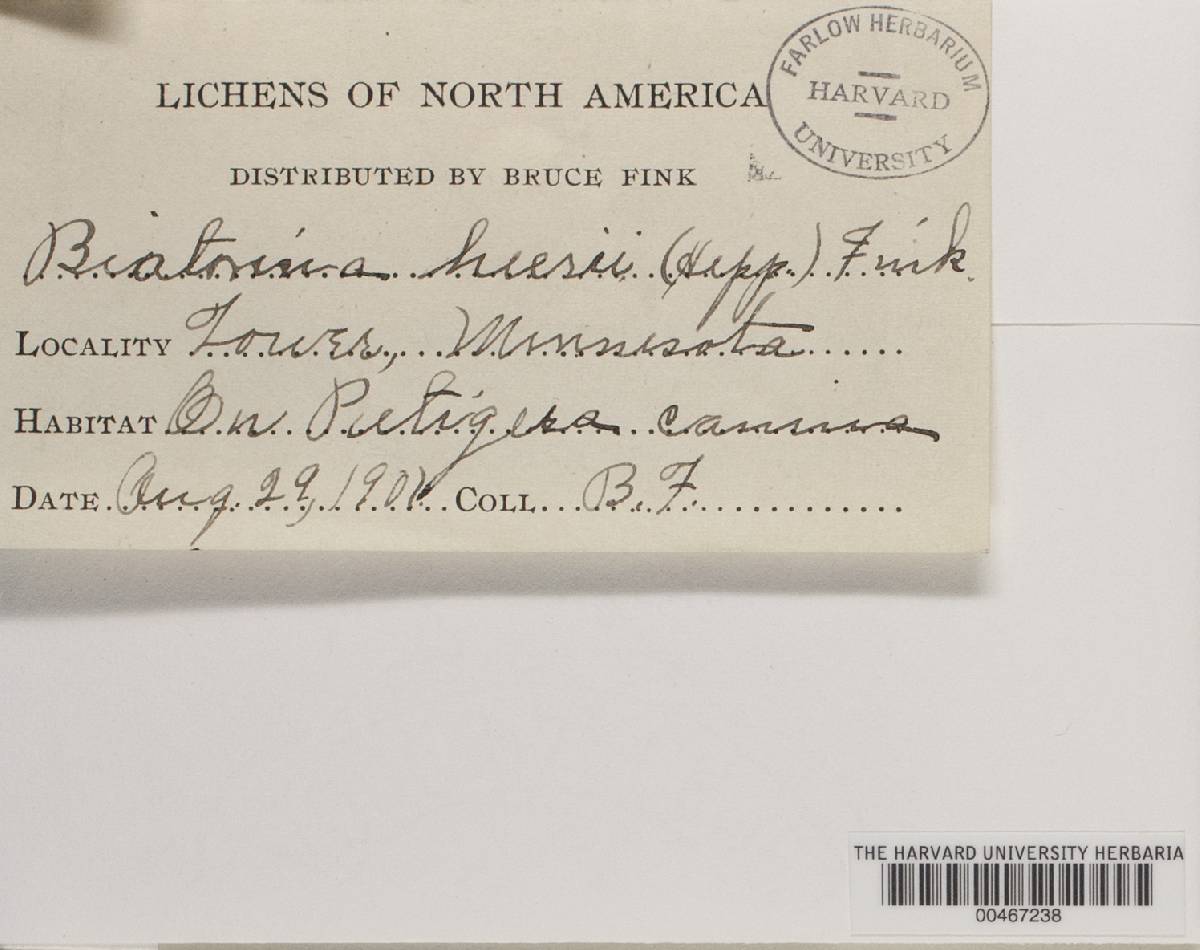 FARLOW HERBARIUM
HARVARD
UNIVERSITY
LICHENS OF NORTH AMERICA
DISTRIBUTED BY BRUCE FINK
Biatorina heerii (Hepp.) Fink.
LOCALITY Tower, Minnesota
HABITAT On Peltigera canina
DATE Aug. 29, 1901 COLL. B. F.
THE HARVARD UNIVERSITY HERBARIA
00467238